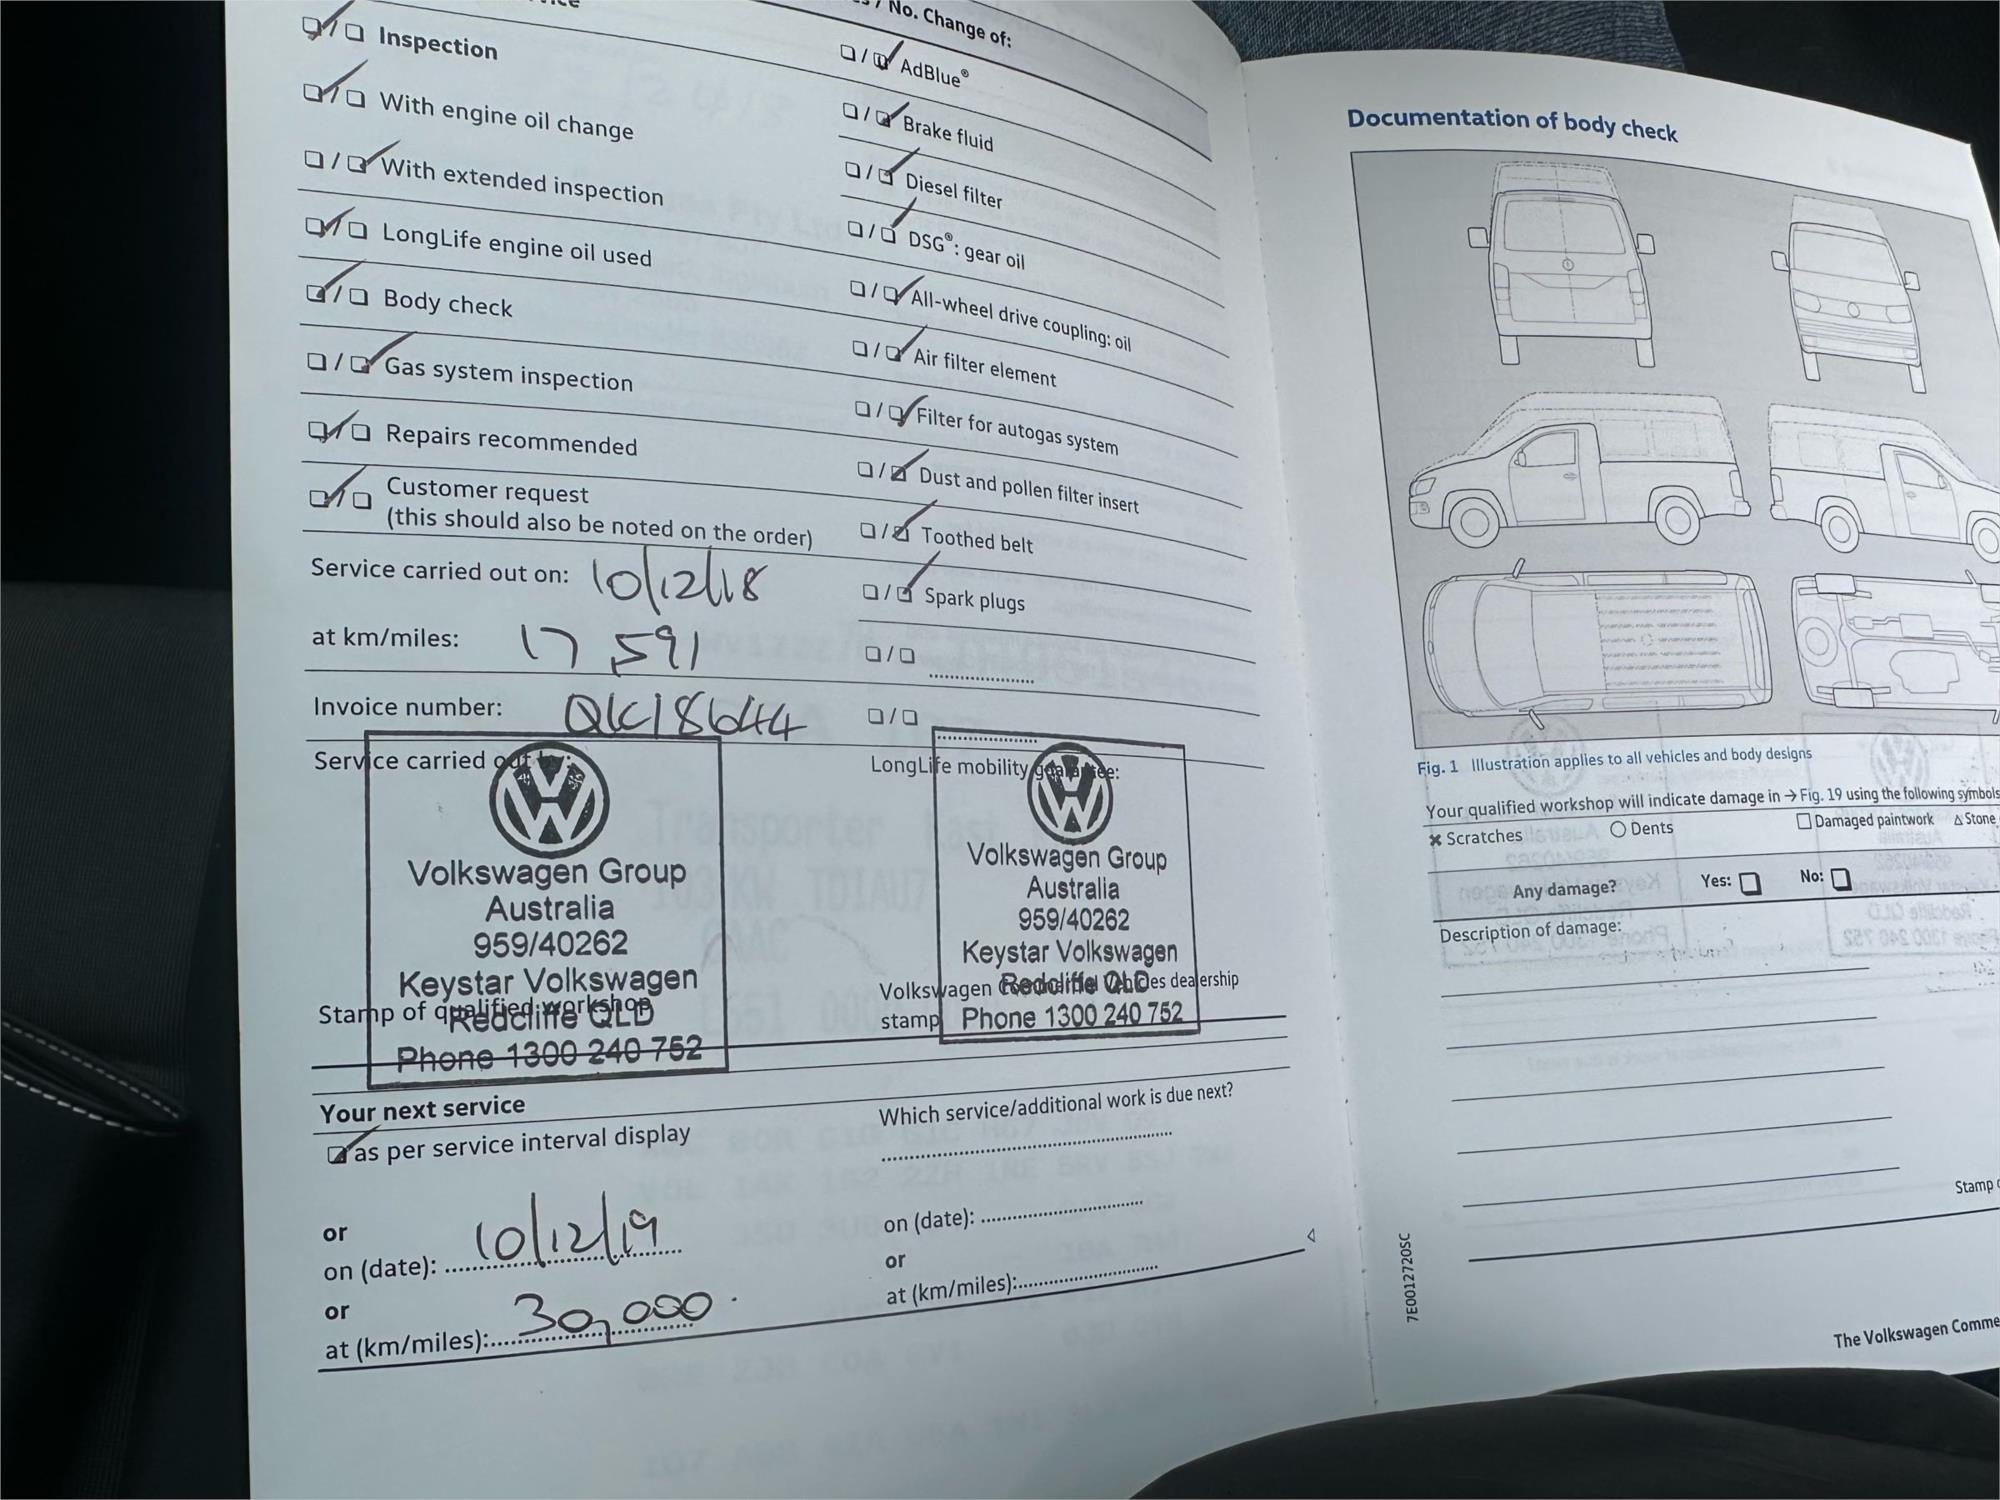 No. Change of:
Inspection
With engine oil change
With extended inspection
LongLife engine oil used
Body check
Gas system inspection
Repairs recommended
Customer request
(this should also be noted on the order)
Service carried out on: 10/12/18
at km/miles: 17,591
Invoice number: QK18644
Service carried out by:
Volkswagen Group
Australia
959/40262
Keystar Volkswagen
Redcliffe QLD
Phone 1300 240 752
Stamp of qualified workshop
AdBlue®
Brake fluid
Diesel filter
DSG®: gear oil
All-wheel drive coupling: oil
Air filter element
Filter for autogas system
Dust and pollen filter insert
Toothed belt
Spark plugs
LongLife mobility guarantee:
Volkswagen Group
Australia
959/40262
Keystar Volkswagen
Redcliffe QLD
Phone 1300 240 752
Volkswagen Commercial Vehicles dealership
stamp
Your next service
as per service interval display
or
on (date): 10/12/19
or
at (km/miles): 30,000.
Which service/additional work is due next?
on (date):
or
at (km/miles):
Documentation of body check
Fig. 1 Illustration applies to all vehicles and body designs
Your qualified workshop will indicate damage in → Fig. 19 using the following symbols
Scratches Dents Damaged paintwork Stone
Any damage? Yes: No:
Description of damage:
Stamp
7E0012720SC
The Volkswagen